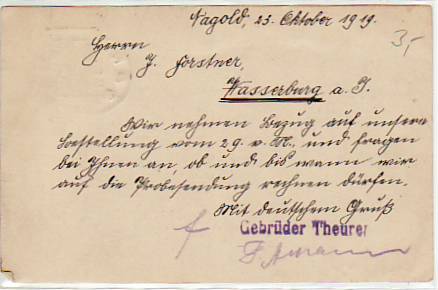 Nagold, 23. Oktober 1919.
3,-
Herrn
J. Forstner,
Wasserburg a. I.
Wir nehmen Bezug auf unsere
Bestellung vom 29. v. M., und fragen
bei Ihnen an, ob und bis wann wir
auf die Probesendung rechnen dürfen.
Mit deutschem Gruß
Gebrüder Theurer